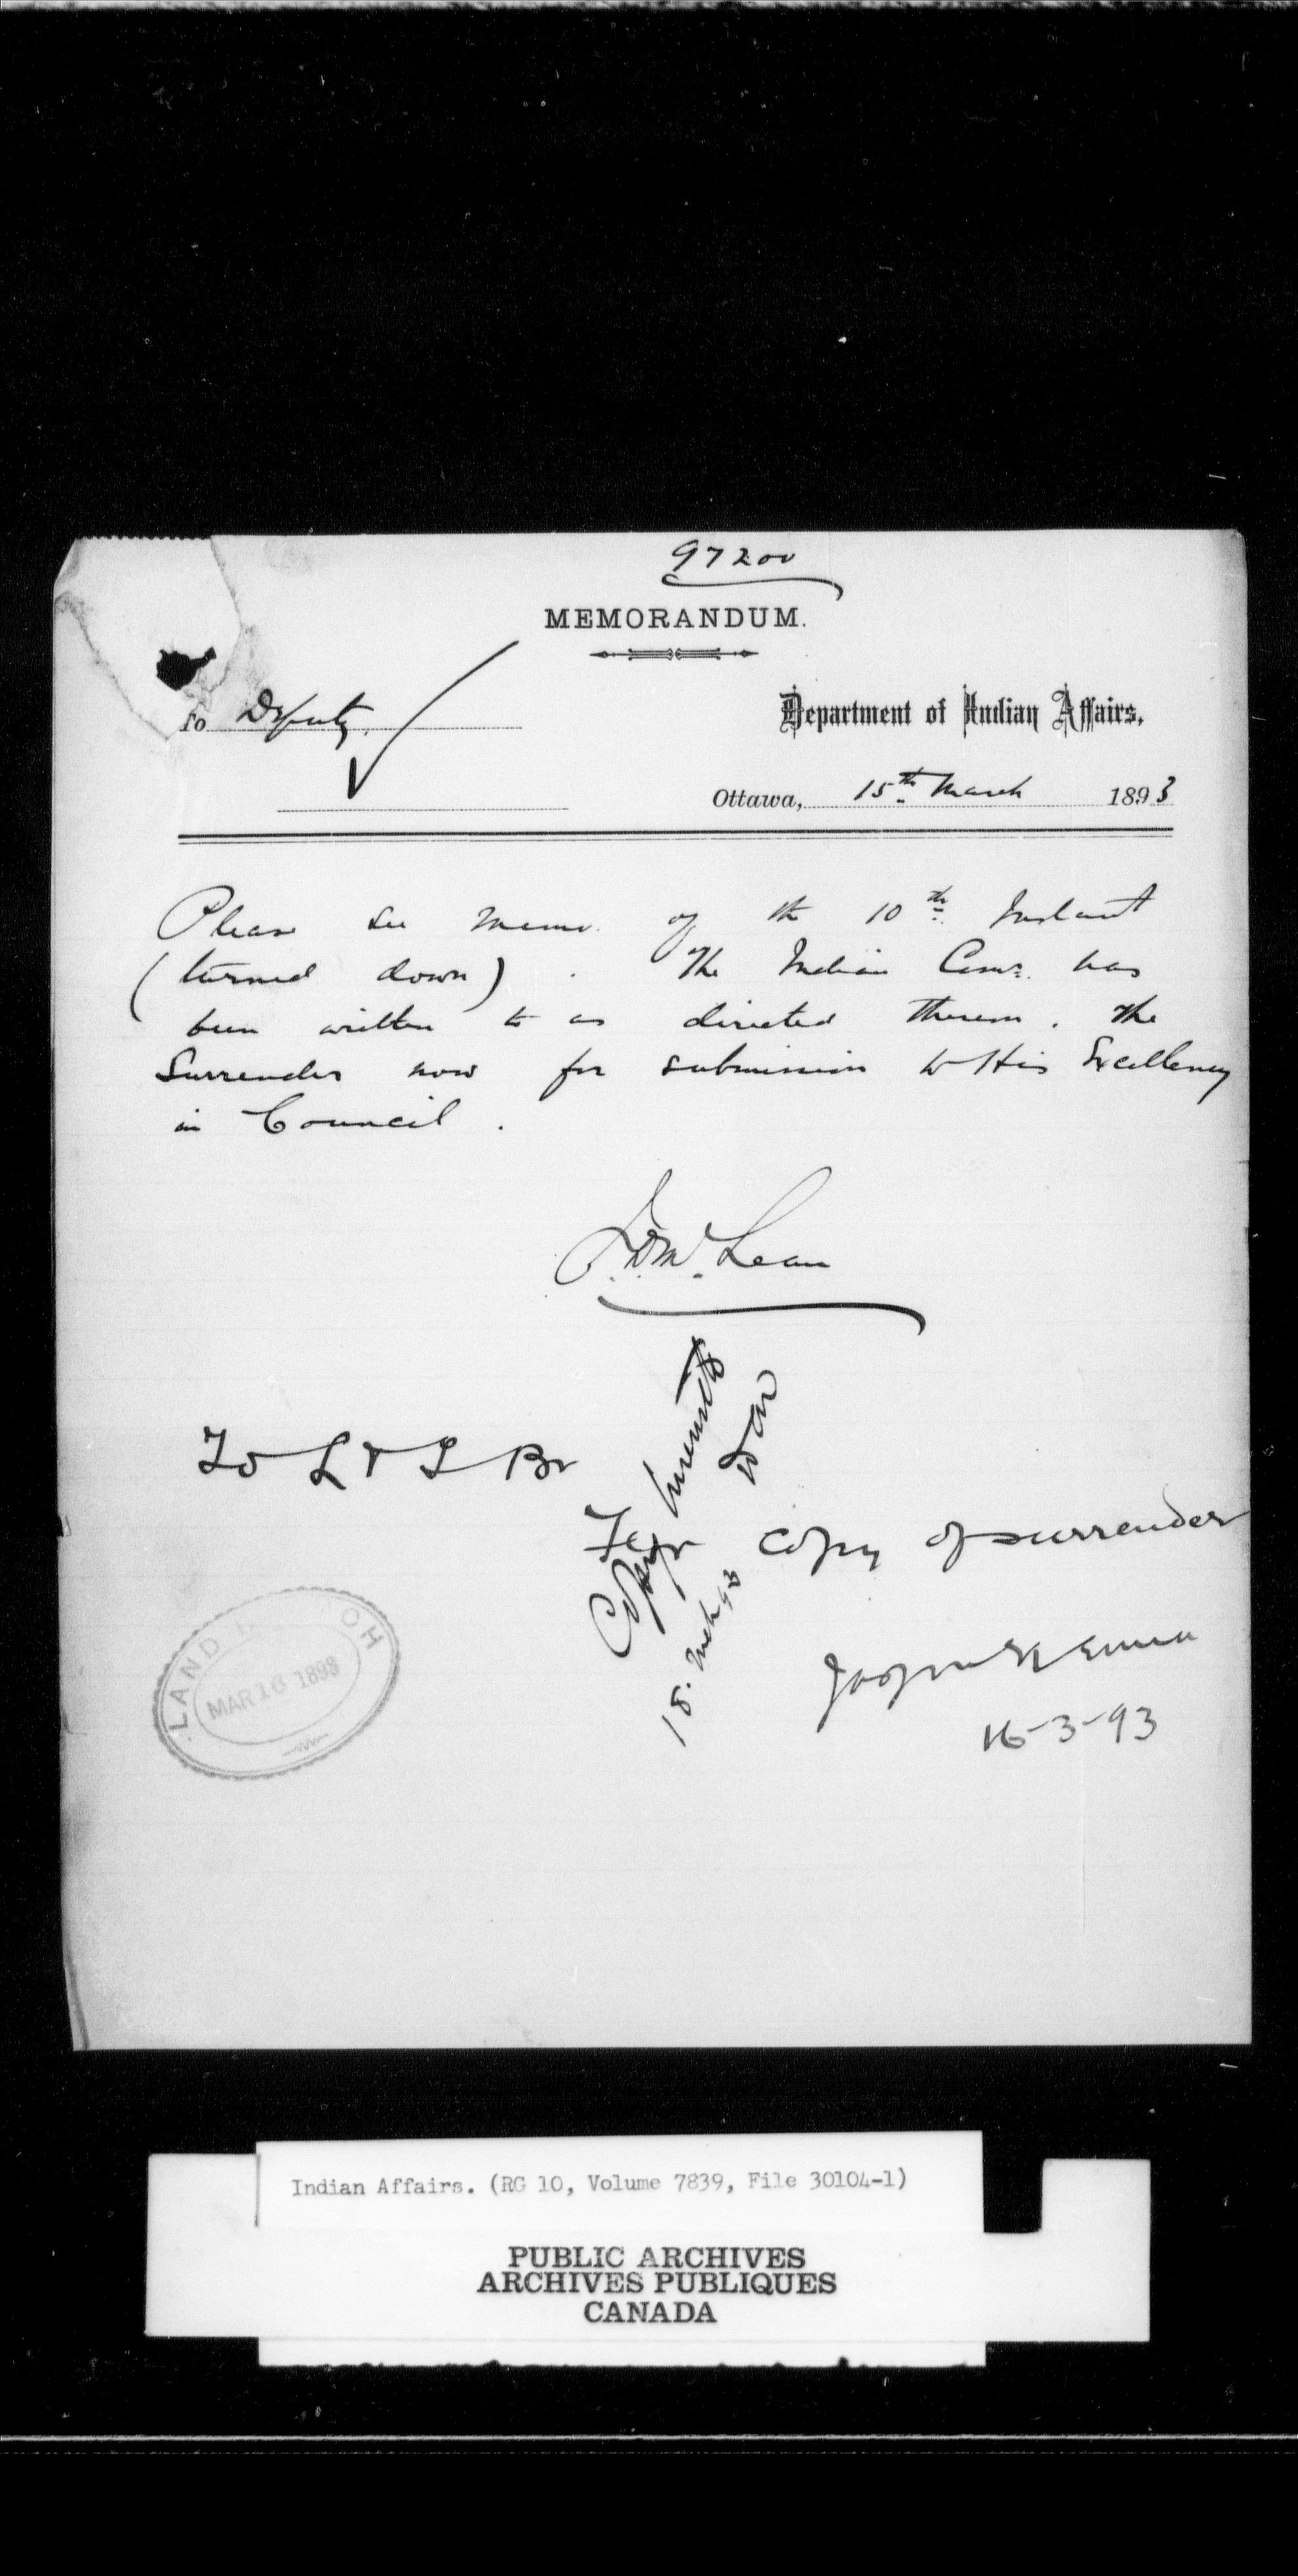 97200
MEMORANDUM.
To Deputy.
Department of Indian Affairs,
Ottawa, 15th March 1893
Please see memo. of the 10th Instant
(turned down). The Indian Comr. has
been written to as directed therein. The
Surrender now for submission to His Excellency
in Council.
J.D. McLean
To L & T Br
For copy of surrender
Copy herewith
18. Mch 93
16-3-93
LAND
MAR 16 1893
Indian Affairs. (RG 10, Volume 7839, File 30104-1)
PUBLIC ARCHIVES
ARCHIVES PUBLIQUES
CANADA